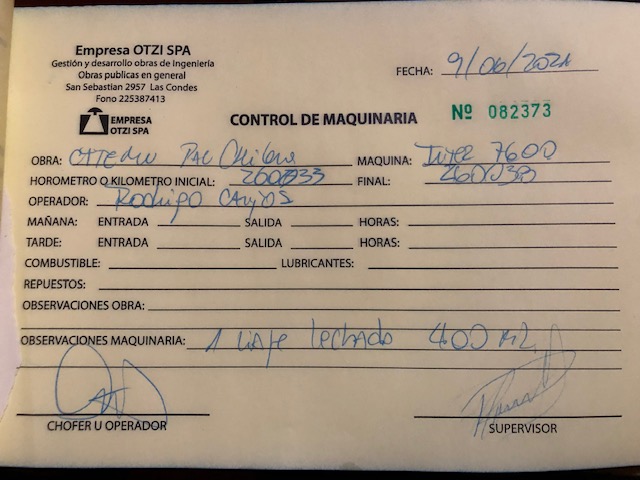 Empresa OTZI SPA
Gestión y desarrollo obras de Ingeniería
Obras publicas en general
San Sebastian 2957 Las Condes
Fono 225387413
FECHA: 9/06/2021
EMPRESA
OTZI SPA
CONTROL DE MAQUINARIA
Nº 082373
OBRA: MAQUINA: 7600
HOROMETRO O KILOMETRO INICIAL: 260033 FINAL:
OPERADOR: Rodrigo
MAÑANA: ENTRADA SALIDA HORAS:
TARDE: ENTRADA SALIDA HORAS:
COMBUSTIBLE: LUBRICANTES:
REPUESTOS:
OBSERVACIONES OBRA:
OBSERVACIONES MAQUINARIA: 1 viaje lechado 400 m2
CHOFER U OPERADOR
SUPERVISOR